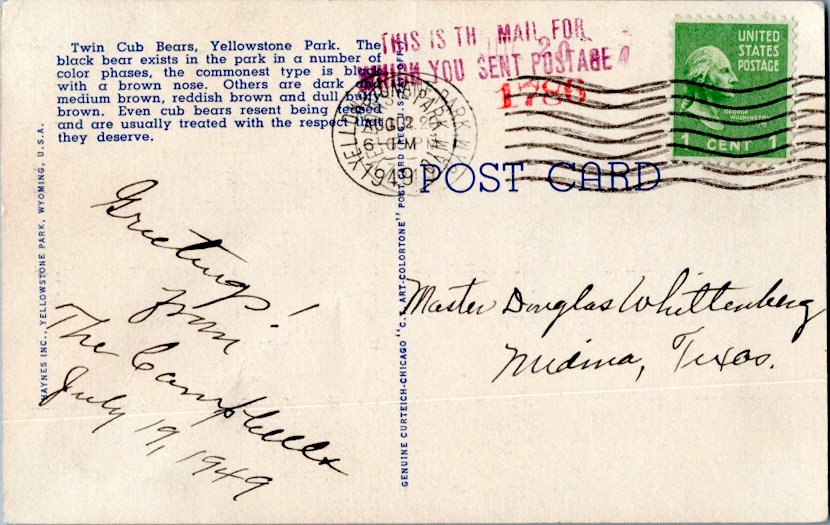 Twin Cub Bears, Yellowstone Park. The
black bear exists in the park in a number of
color phases, the commonest type is black
with a brown nose. Others are dark and
medium brown, reddish brown and dull
brown. Even cub bears resent being teased
and are usually treated with the respect that
they deserve.
THIS IS TH MAIL FOR
WHICH YOU SENT POSTAGE
1786
AUG 2
PM
1949
UNITED
STATES
POSTAGE
GEORGE
WASHINGTON
1 CENT 1
POST CARD
HAYNES INC., YELLOWSTONE PARK, WYOMING, U.S.A.
GENUINE CURTEICH-CHICAGO "C.T. ART-COLORTONE" POST CARD
Greetings!
from
The Campbells
July 19, 1949
Master Douglas Whittenberg
Medina, Texas.